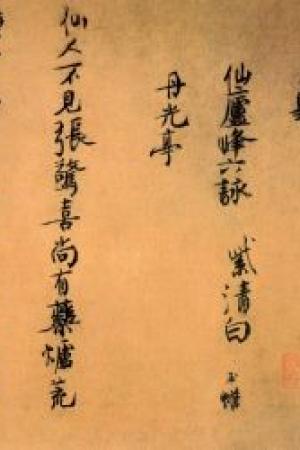 仙廬峰六詠 紫清白玉蟾
丹光亭
仙人不見張驚喜尚有藥爐荒